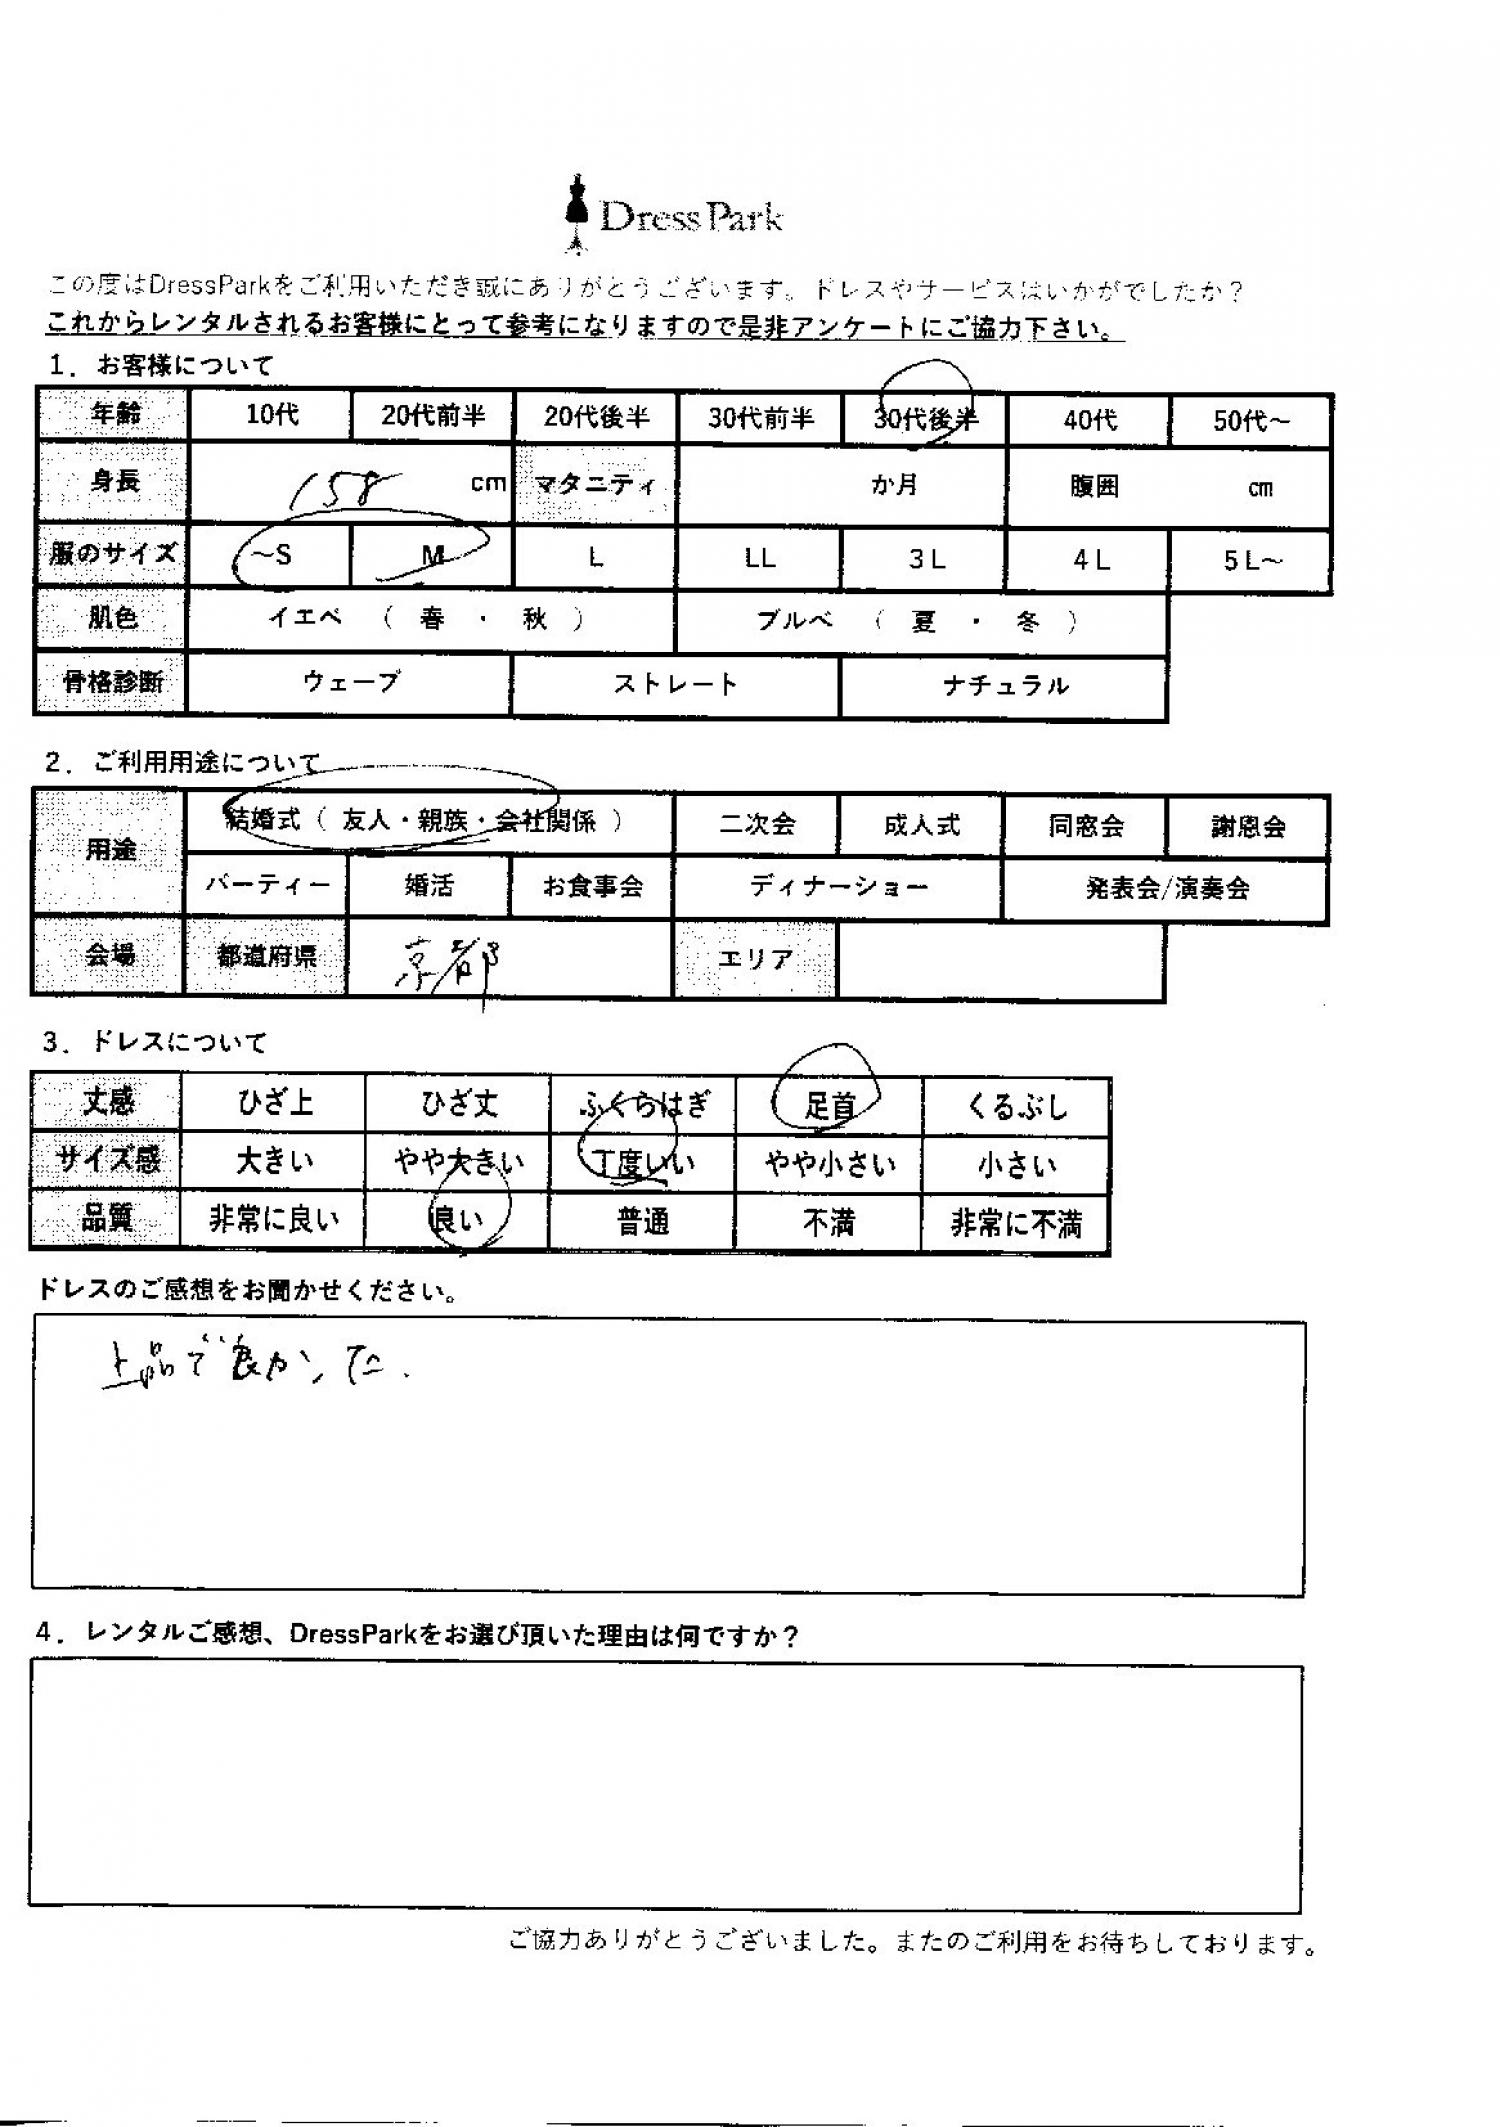 DressPark
この度はDressParkをご利用いただき誠にありがとうございます。ドレスやサービスはいかがでしたか？
これからレンタルされるお客様にとって参考になりますので是非アンケートにご協力下さい。
1．お客様について
年齢 10代 20代前半 20代後半 30代前半 30代後半 40代 50代～
身長 158 cm マタニティ か月 腹囲 cm
服のサイズ ～S M L LL 3L 4L 5L～
肌色 イエベ （ 春 ・ 秋 ） ブルベ （ 夏 ・ 冬 ）
骨格診断 ウェーブ ストレート ナチュラル
2．ご利用用途について
用途 結婚式（ 友人・親族・会社関係 ） 二次会 成人式 同窓会 謝恩会
パーティー 婚活 お食事会 ディナーショー 発表会/演奏会
会場 都道府県 京都 エリア
3．ドレスについて
丈感 ひざ上 ひざ丈 ふくらはぎ 足首 くるぶし
サイズ感 大きい やや大きい 丁度いい やや小さい 小さい
品質 非常に良い 良い 普通 不満 非常に不満
ドレスのご感想をお聞かせください。
上品で良かった.
4．レンタルご感想、DressParkをお選び頂いた理由は何ですか？
ご協力ありがとうございました。またのご利用をお待ちしております。